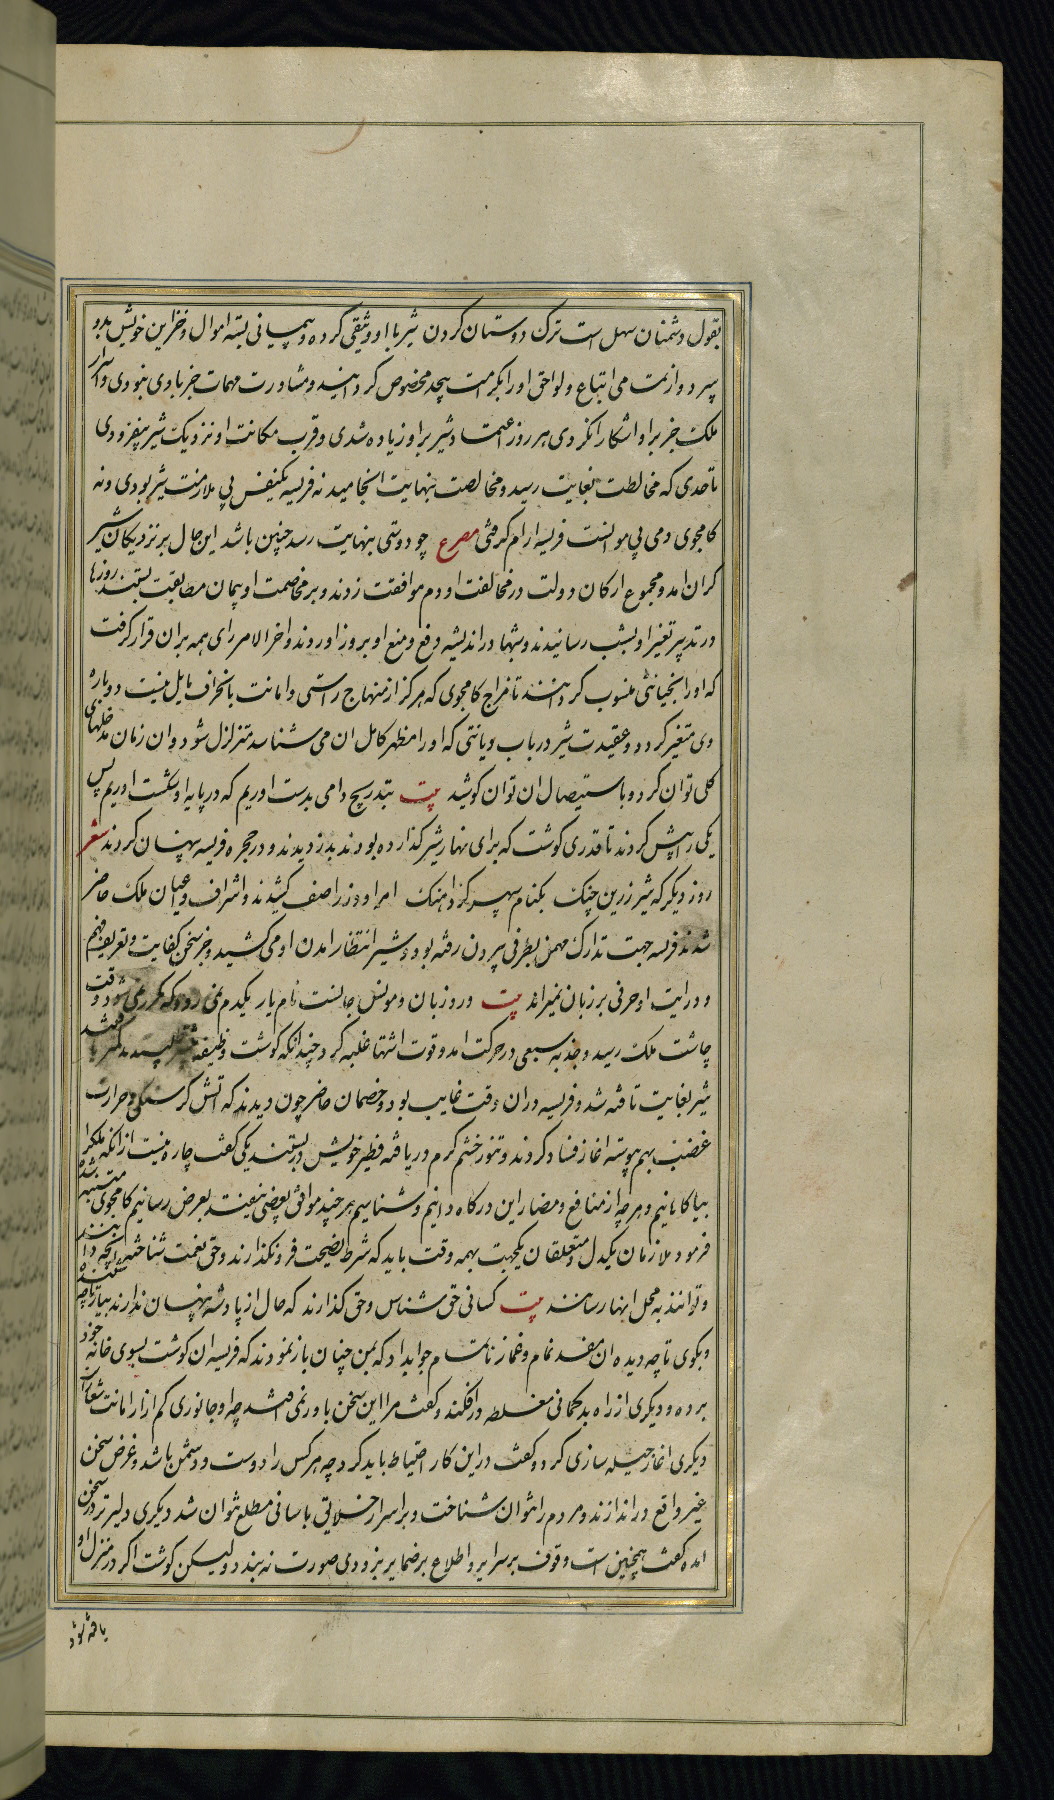 بقول دشمنان سهل است ترک دوستان کردن شیر با او وثیقی کرده و پیمانی بسته اموال و خزاین خویش بدو
سپرد و از تمامی اتباع و لواحق او را بکرامت بیحد مخصوص گردانید و مشاورت مهمات جز با وی ننمودی و اسرار
ملک جز بر او اشکارا نکردی هر روز اعتماد شیر بر او زیاده شدی و قرب مکانت او نزدیک شیر بیفزودی
تا حدی که مخالطت بغایت رسید و مخالصت بنهایت انجامید نه فریسه یکنفس بی ملازمت شیر بودی و نه
کامجوی دمی بی موانست فریسه ارام گرفتی مصرع چو دوستی بنهایت رسد چنین باشد این حال بر نزدیکان شیر
گران امد و مجموع ارکان دولت در مخالفت او دم موافقت زدند و بر مخاصمت او پیمان مطابقت بستند روزها
در تدبیر تغیر او بشب رسانیدند و شبها در اندیشه دفع و منع او بروز اوردند و اخر الامر رای همه بران قرار گرفت
که او را بخیانتی منسوب گردانند تا مزاج کامجوی که هرگز از منهاج راستی و امانت بانحراف مایل نیست در باره
وی متغیر گردد و عقیدت شیر در باب دیانتی که او را مظهر کامل ان می شناسد متزلزل شود و ان زمان مدخلهای
کلی توان کرد و باستیصال ان توان کوشید بیت بتدریج دامی بدست اوریم که در پایه او شکست اوریم پس
یکی را پیش کردند تا قدری گوشت که برای نهار شیر گذارده بودند بدزدیدند و در حجره فریسه پنهان کردند شعر
روز دیگر که شیر زرین چنگ بکنام سپهر کرد اهنگ امرا و وزرا صف کشیدند و اشراف و اعیان ملک حاضر
شدند فریسه جهت تدارک مهمی بطرفی بیرون رفته بود و شیر انتظار امدن او می کشید و جز سخن کفایت و تعریف فهم
و درایت او حرفی بر زبان نمیراند بیت ورد زبان و مونس جانست نام یار یکدم نمی رود که مکرر نمی شود وقت
چاشت ملک رسید و جذبه سبعی در حرکت امد و قوت اشتها غلبه کرد چندانکه گوشت وظیفه طلبیدند کمتر یافتند
شیر بغایت تافته شد و فریسه دران وقت غایب بود و خصمان حاضر چون دیدند که اتش گرسنگی و حرارت
غضب بهم پیوسته اغاز فساد کردند و تنور خشم گرم دریافته فطیر خویش دربستند یکی گفت چاره نیست از انکه ملک را
بیاگاهانیم و هر چه از منافع و مضار این درگاه دانیم و شناسیم هر چند موافق بعضی نیفتد بعرض رسانیم کامجوی متنبه شده
فرمود ملازمان یکدل و متعلقان یکجهت بهمه وقت باید که شرط نصیحت فرونگذارند و حق نعمت شناخته انچه دانند
و توانند به محل انها رسانند بیت کسانی حق شناس و حق گذارند که حال از پادشه پنهان ندارند بیار تا چه شنیده
و بگوی تا چه دیده ان مفسد نمام و غماز ناتمام جواب داد که بمن چنان باز نمودند که فریسه ان گوشت بسوی خانه خود
برده و دیگری از راه بدگمانی مغلطه درافکند و گفت مرا این سخن باور نمی افتد چه او جانوری کم ازار امانت شعارست
دیگری اغاز حیله سازی کرد و گفت در این کار احتیاط باید کرد چه هر کس را دوست و دشمن باشد و غرض سخن
غیر واقع دراندازند و مردم را نتوان شناخت و بر اسرار خلایق باسانی مطلع نتوان شد دیگری دلیرتر در سخن
امده گفت همچنین است وقوف بر سرایر و اطلاع بر ضمایر بزودی صورت نه بندد ولیکن گوشت اگر در منزل او
یافته شود